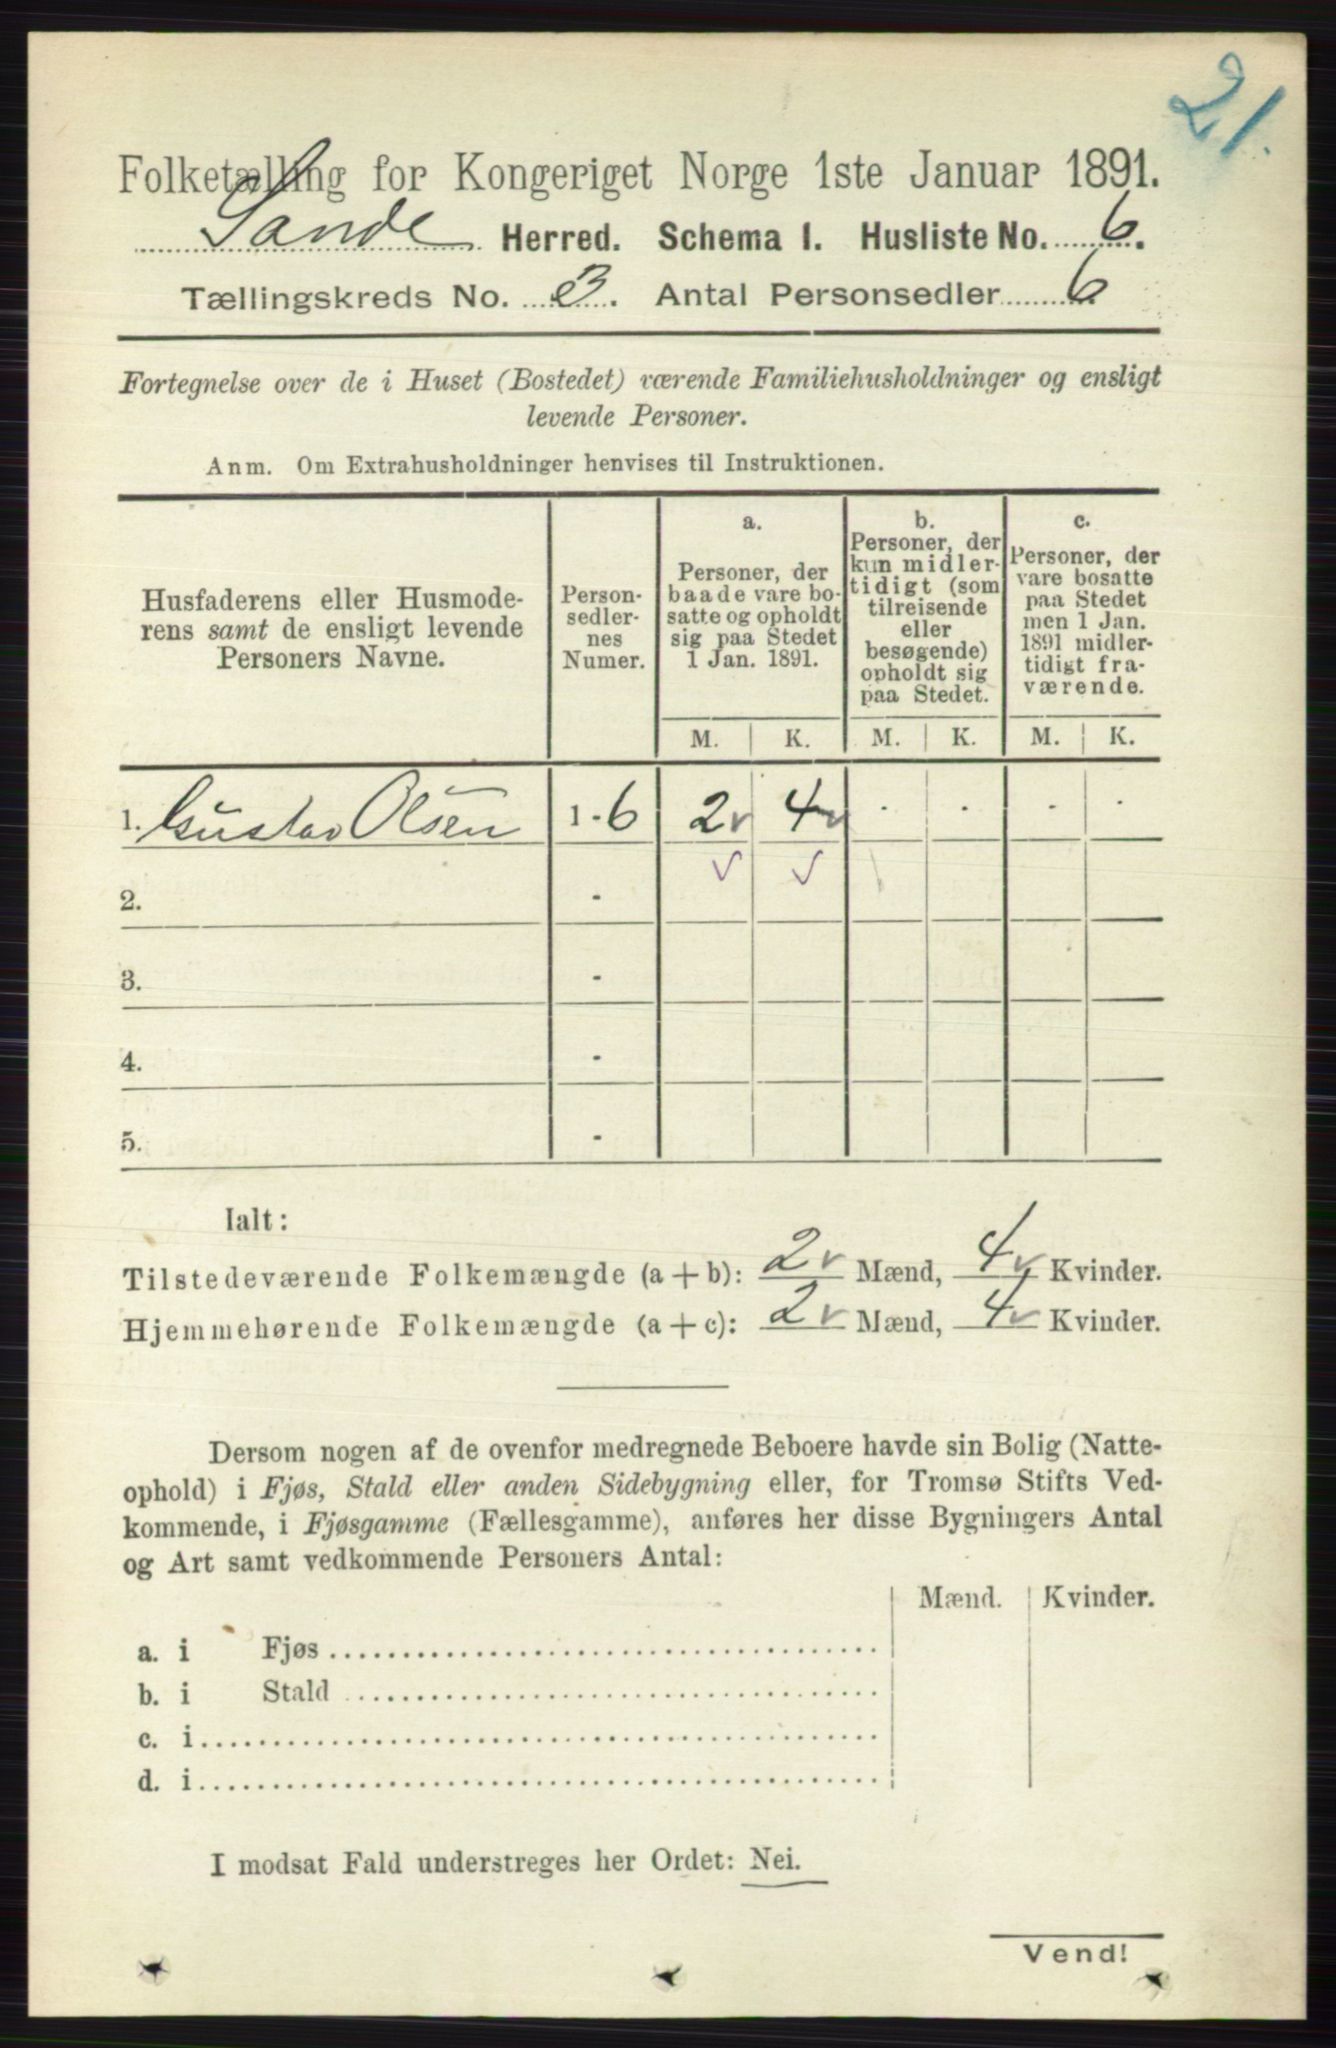 21.
Folketælling for Kongeriget Norge 1ste Januar 1891.
Sande Herred. Schema I. Husliste No. 6.
Tællingskreds No. 3. Antal Personsedler 6
Fortegnelse over de i Huset (Bostedet) værende Familiehusholdninger og ensligt
levende Personer.
Anm. Om Extrahusholdninger henvises til Instruktionen.
Husfaderens eller Husmode-
rens samt de ensligt levende
Personers Navne.
Person-
sedler-
nes
Numer.
a.
Personer, der
baade vare bo-
satte og opholdt
sig paa Stedet
1 Jan. 1891.
b.
Personer, der
kun midler-
tidigt (som
tilreisende
eller
besøgende)
opholdt sig
paa Stedet.
c.
Personer, der
vare bosatte
paa Stedet
men 1 Jan.
1891 midler-
tidigt fra-
værende.
M. K. M. K. M. K.
1. Gustav Olsen 1 - 6 2 v 4 v . . . .
v v
2. -
3. -
4. -
5. -
Ialt:
Tilstedeværende Folkemængde (a + b): 2 v Mænd, 4 v Kvinder.
Hjemmehørende Folkemængde (a + c): 2 v Mænd, 4 v Kvinder.
Dersom nogen af de ovenfor medregnede Beboere havde sin Bolig (Natte-
ophold) i Fjøs, Stald eller anden Sidebygning eller, for Tromsø Stifts Ved-
kommende, i Fjøsgamme (Fællesgamme), anføres her disse Bygningers Antal
og Art samt vedkommende Personers Antal:
Mænd. Kvinder.
a. i Fjøs
b. i Stald
c. i
d. i
I modsat Fald understreges her Ordet: Nei.
Vend!